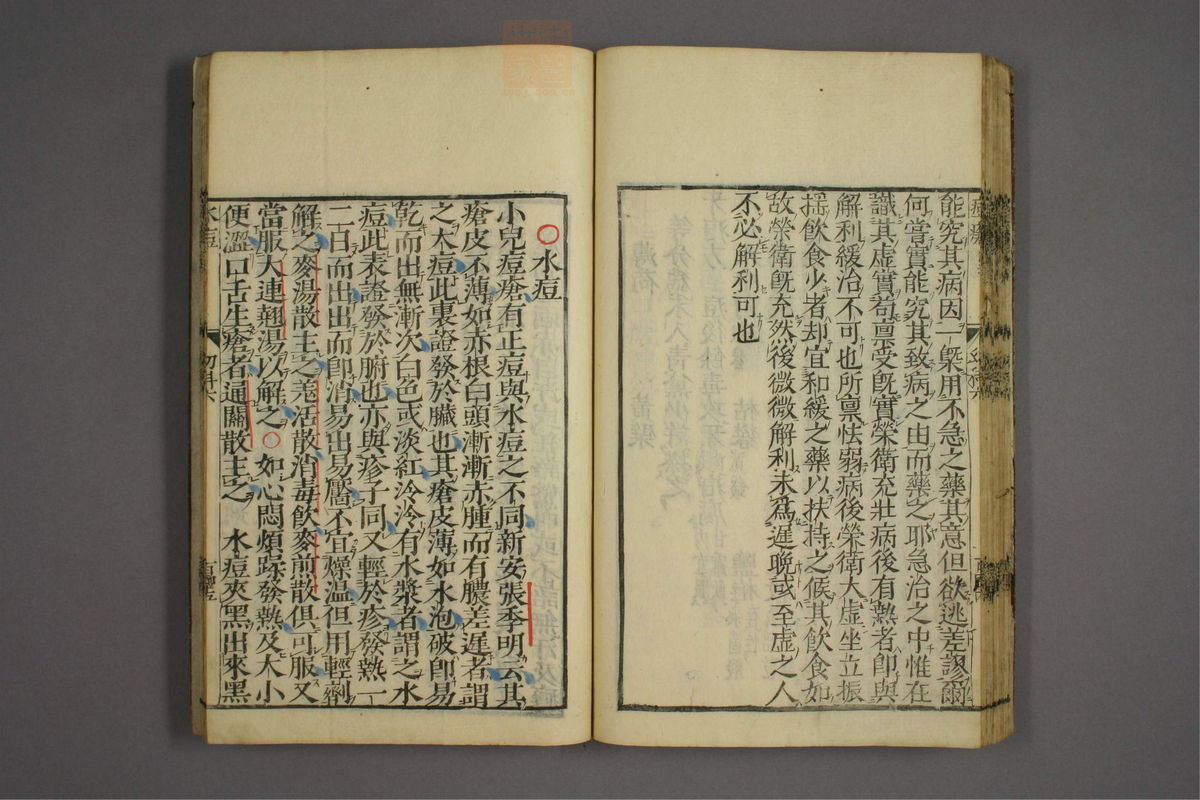 能究其病因一槩用不急之藥其意但欲逃差謬爾
何嘗實能究其致病之由而藥之耶急治之中惟在
識其虛實苟禀受旣實榮衛充壯病後有熱者卽與
解利緩治不可也所禀怯弱病後榮衛大虛坐立振
揺飲食少者却宜和緩之藥以扶持之候其飲食如
故榮衛旣充然後微微解利未爲遲晩或至虛之人
不必解利可也
○水痘
小兒痘瘡有正痘與水痘之不同新安張季明云其
瘡皮不薄如赤根白頭漸漸赤腫而有膿差遲者謂
之大痘此裏證發於臟也其瘡皮薄如水泡破卽易
乾而出無漸次白色或淡紅泠泠有水漿者謂之水
痘此表證發於腑也亦與疹子同又輕於疹發熱一
二百而出出而卽消易出易靨不宜燥温但用輕劑
解之麥湯散主之羗活散消毒飲麥煎散俱可服又
當服大連翹湯以解之○如心悶煩躁發熱及大小
便澀口舌生瘡者通關散主之 水痘夾黑出來黑
水痘
幼科六